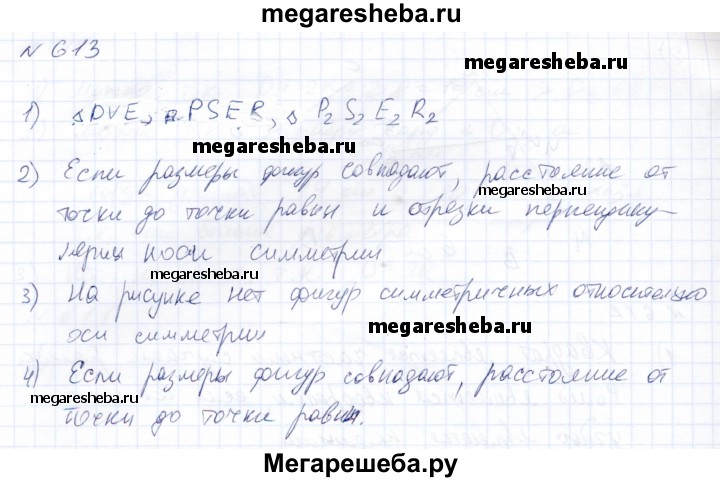 megaresheba.ru
N 613
megaresheba.ru
1) △DVE, □PSER, △ P₂S₂E₂R₂
megaresheba.ru
2) Если размеры фигур совпадают, расстояние от
megaresheba.ru
точки до точки равны и отрезки перпендику-
лярны к оси симметрии
megaresheba.ru
3) На рисунке нет фигур симметричных относительно
оси симметрии
megaresheba.ru
4) Если размеры фигур совпадают, расстояние от
megaresheba.ru
точки до точки равны.
Мегарешеба.ру